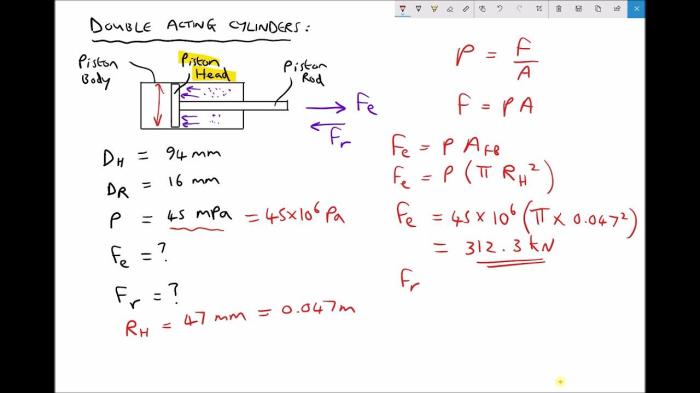 DOUBLE ACTING CYLINDERS:
Piston Body
Piston Head
Piston Rod
Fe
Fr
DH = 94 mm
DR = 16 mm
P = 45 mPa = 45×10⁶ Pa
Fe = ?
Fr = ?
RH = 47 mm = 0.047m
P = F/A
F = PA
Fe = P AFB
Fe = P (π RH²)
Fe = 45×10⁶ (π × 0.047²)
= 312.3 kN
Fr